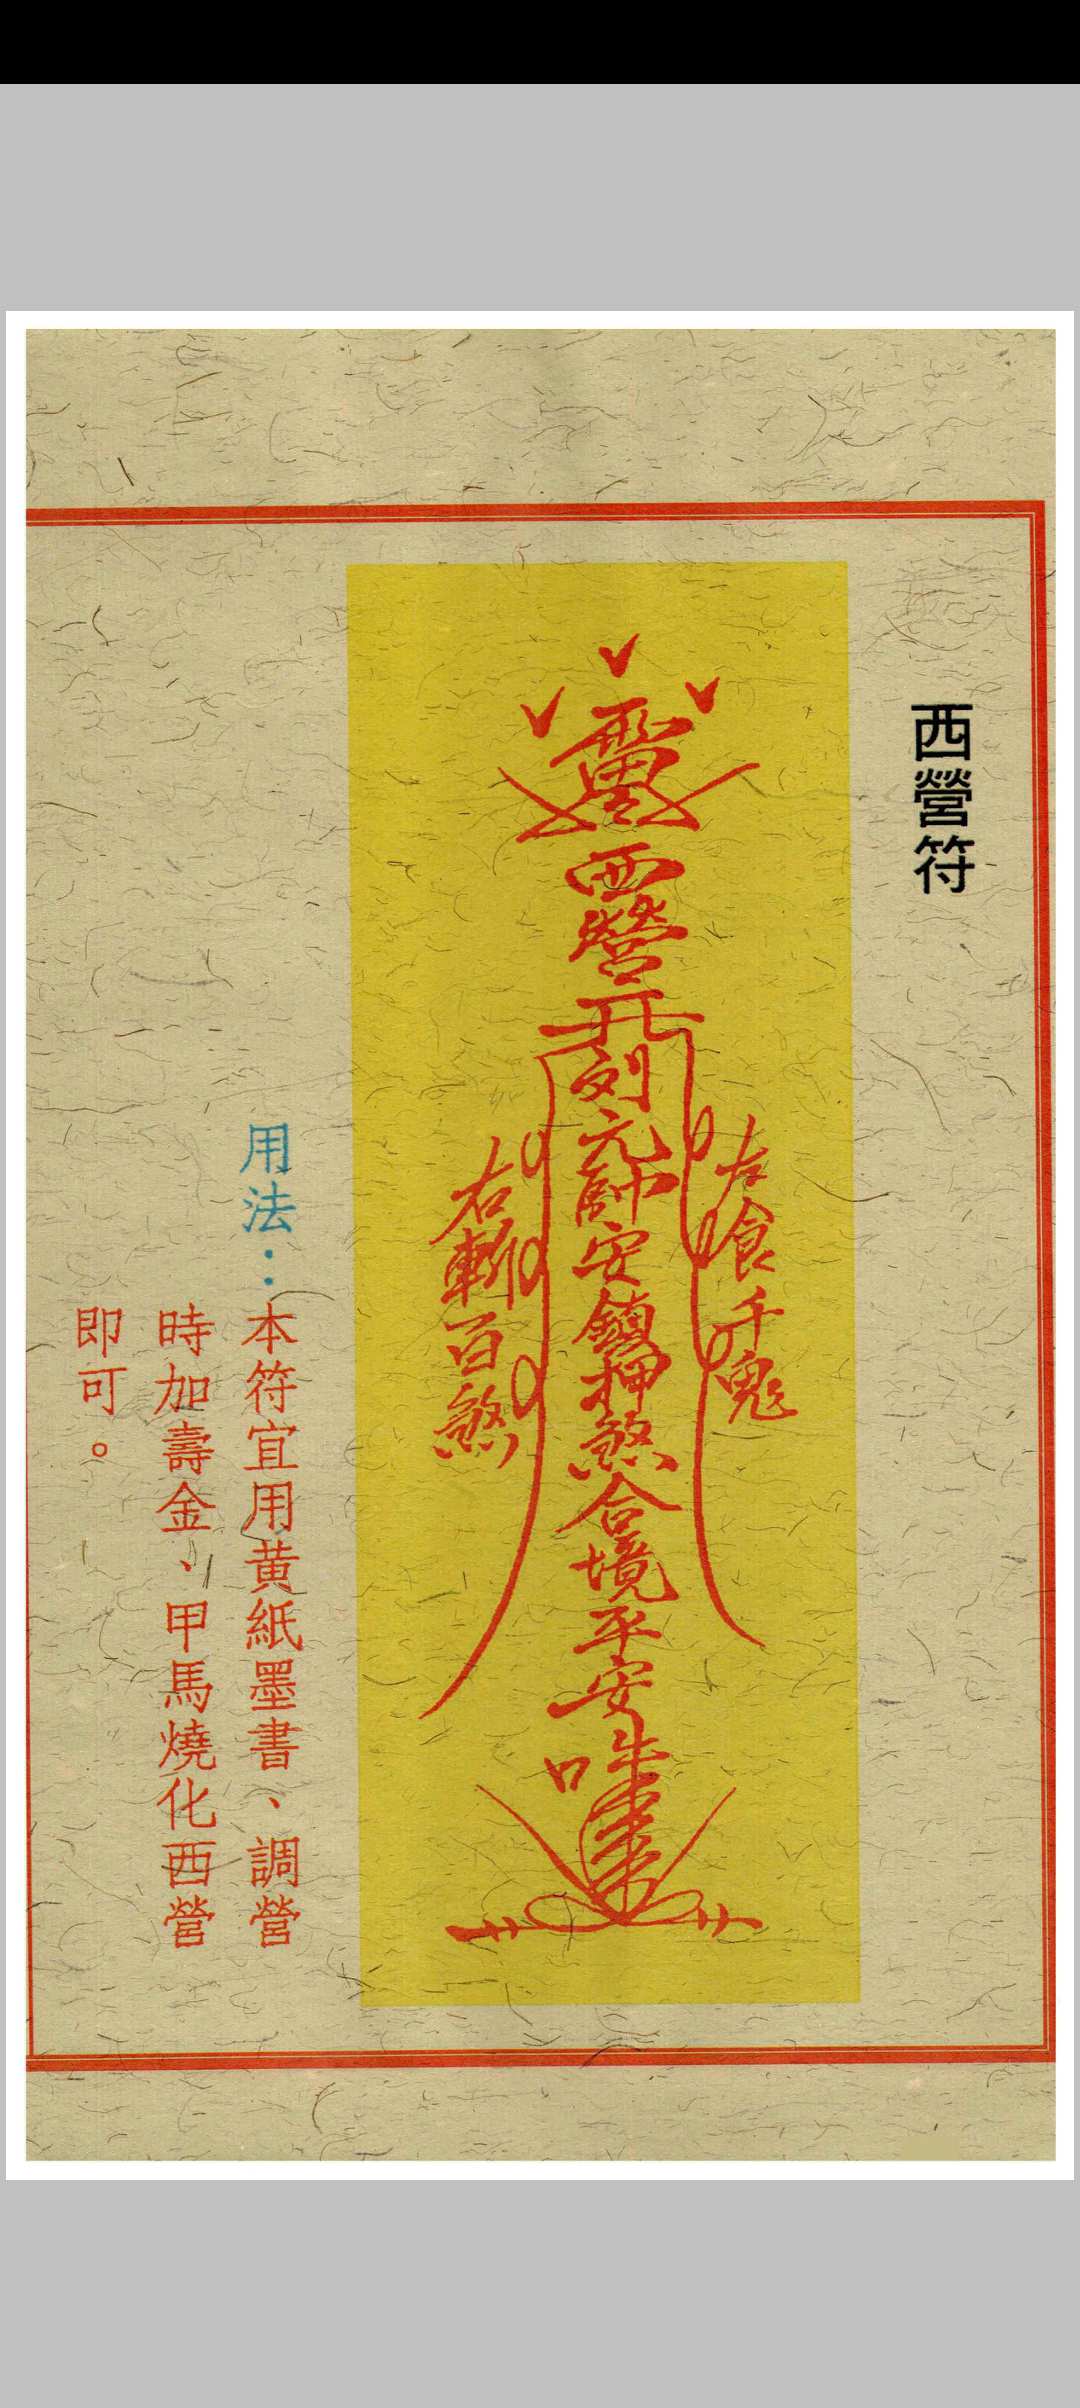 西營符
西營
列元帥安鎮押煞合境平安
左食千鬼
右斬百煞
用法：本符宜用黃紙墨書、調營
時加壽金、甲馬燒化西營
即可。